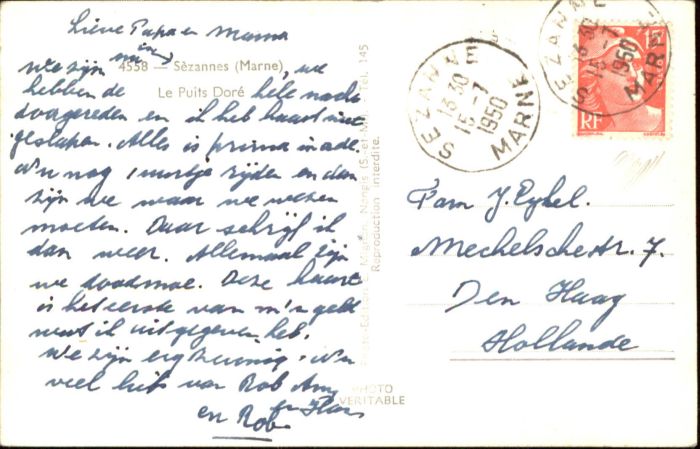 Lieve Papa en Mama
We zijn in , we
4558 - Sèzannes (Marne)
Le Puits Doré
hebben de hele nacht
doorgereden en ik heb haast niet
geslapen. Alles is prima in orde.
Nu nog 1 uurtje rijden en dan
zijn we waar we wezen
moeten. Daar schrijf ik
dan weer. Allemaal zijn
we doodmoe. Deze kaart
is het eerste van m'n geld
wat ik uitgegeven heb.
We zijn erg zuinig. Nu
veel liefs van Rob Amy
en Hans
en Rob
Tel. 145
Reproduction interdite.
PHOTO
VERITABLE
SEZANNE
13 30
15-7
1950
MARNE
SEZANNE
13 30
15-7
1950
MARNE
15F
RF
Fam J. Eykel.
Mechelschestr. 7.
Den Haag
Hollande